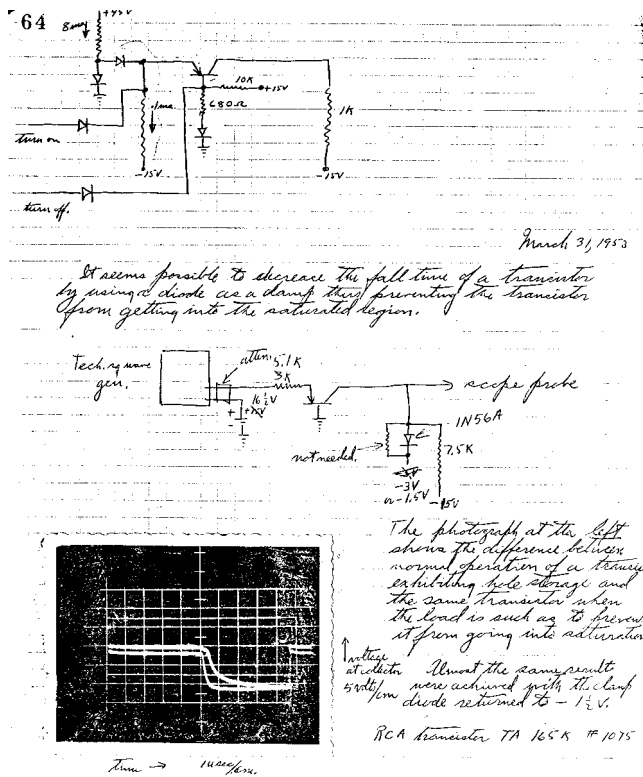 64
8 ma
+45V
10K
+15V
680Ω
.1ma.
1K
turn on
-15V
-15V
turn off.
March 31, 1953
It seems possible to decrease the fall time of a transistor
by using a diode as a clamp thus preventing the transistor
from getting into the saturated region.
Tech. square
gen.
atten.
5.1K
3K
scope probe
16½V
+
-
1N56A
7.5K
not needed.
-3V
or -1.5V
-15V
The photograph at the left
shows the difference between
normal operation of a transis
exhibiting hole storage and
the same transistor when
the load is such as to preven
it from going into saturation
voltage
at collector
5 volts/cm
Almost the same result
were achieved with the clamp
diode returned to -1½V.
RCA transistor TA 165K #1075
Time → 1usec/cm.